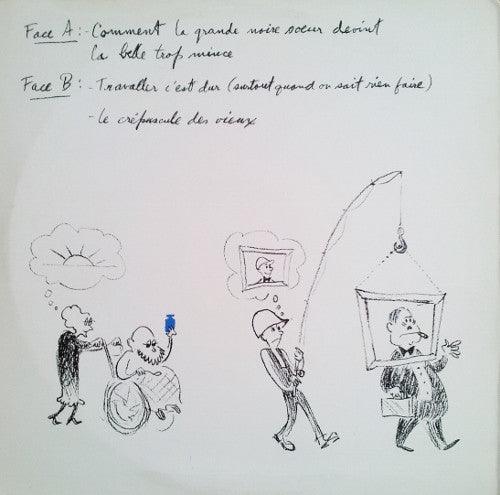 Face A : - Comment la grande noire soeur devint
la belle trop mince
Face B : - Travailler c'est dur (surtout quand on sait rien faire)
- Le crépuscule des vieux